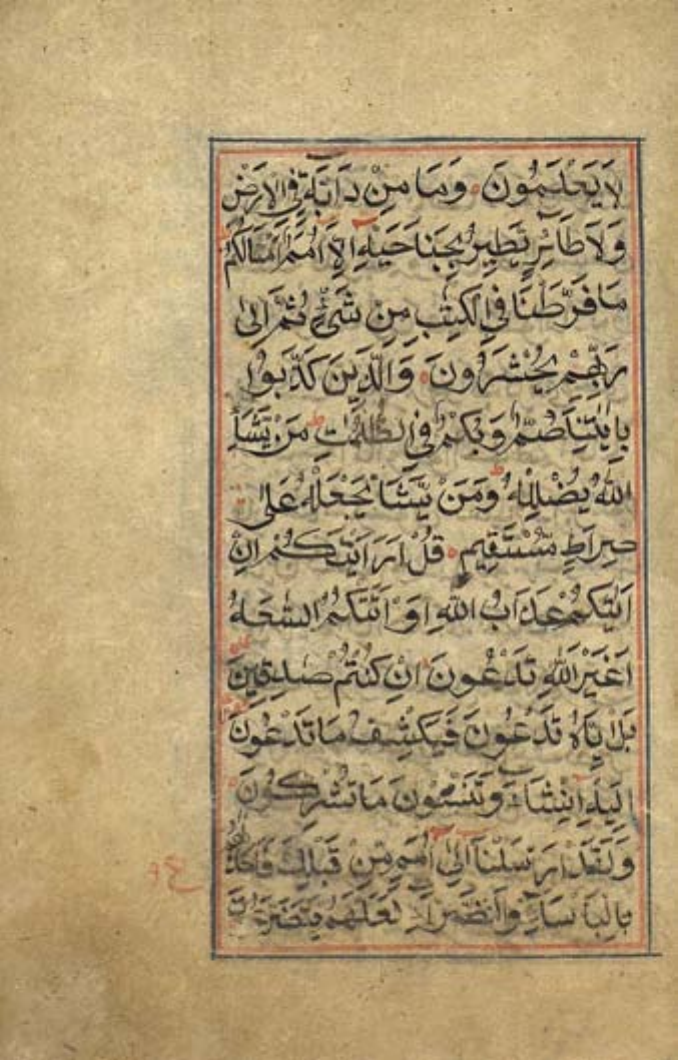 لَا يَعْلَمُونَ وَمَا مِنْ دَابَّةٍ فِي الْاَرْضِ
وَلَا طَائِرٍ يَطِيرُ بِجَنَاحَيْهِ اِلَّا اُمَمٌ اَمْثَالُكُمْ
مَا فَرَّطْنَا فِي الْكِتٰبِ مِنْ شَيْءٍ ثُمَّ اِلٰى
رَبِّهِمْ يُحْشَرُونَ وَالَّذِينَ كَذَّبُوا
بِاٰيٰتِنَا صُمٌّ وَبُكْمٌ فِي الظُّلُمٰتِ مَنْ يَشَاِ
اللّٰهُ يُضْلِلْهُ وَمَنْ يَّشَاْ يَجْعَلْهُ عَلٰى
صِرَاطٍ مُسْتَقِيمٍ قُلْ اَرَاَيْتَكُمْ اِنْ
اَتٰىكُمْ عَذَابُ اللّٰهِ اَوْ اَتَتْكُمُ السَّاعَةُ
اَغَيْرَ اللّٰهِ تَدْعُونَ اِنْ كُنْتُمْ صٰدِقِينَ
بَلْ اِيَّاهُ تَدْعُونَ فَيَكْشِفُ مَا تَدْعُونَ
اِلَيْهِ اِنْ شَاءَ وَتَنْسَوْنَ مَا تُشْرِكُونَ
وَلَقَدْ اَرْسَلْنَا اِلٰى اُمَمٍ مِنْ قَبْلِكَ
بِالْبَاْسَاءِ وَالضَّرَّاءِ لَعَلَّهُمْ يَتَضَرَّعُونَ